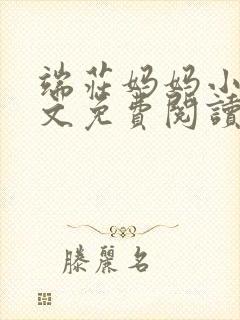 端莊妈妈小
文免費閱讀
滕麗名